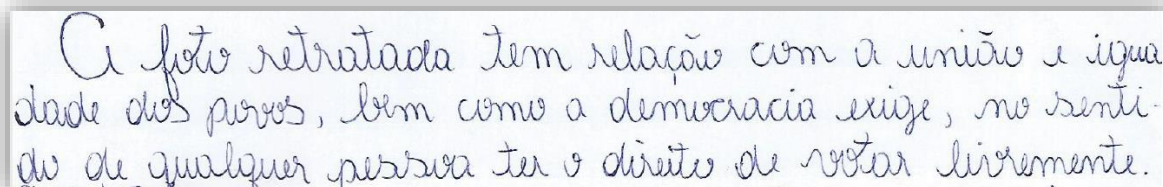 A foto retratada tem relação com a união e igua
dade dos povos, bem como a democracia exige, no senti-
do de qualquer pessoa ter o direito de votar livremente.